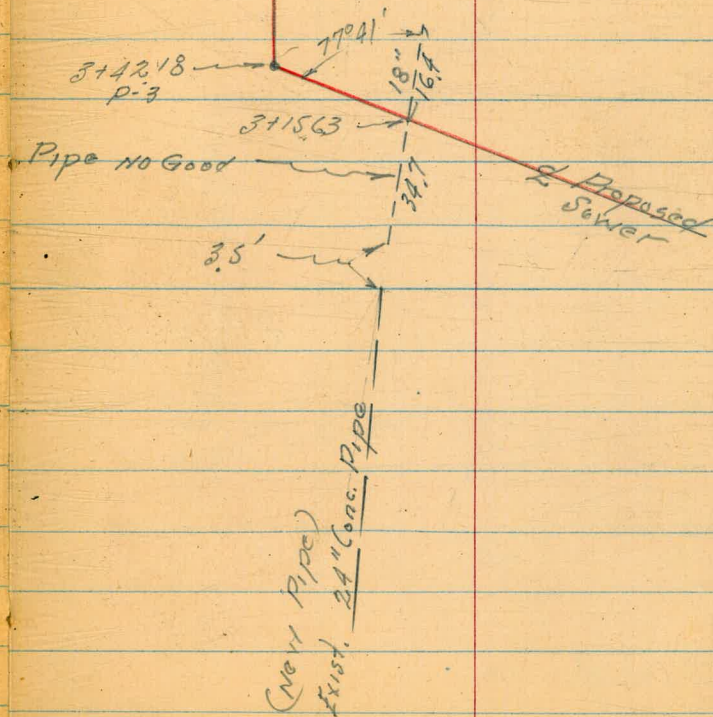 77°41'
18"
16.4
3+42.18
P-3
3+15.63
Pipe No Good
34.7
℄ Proposed
Sewer
3.5'
(New Pipe)
Exist. 24" Conc. Pipe